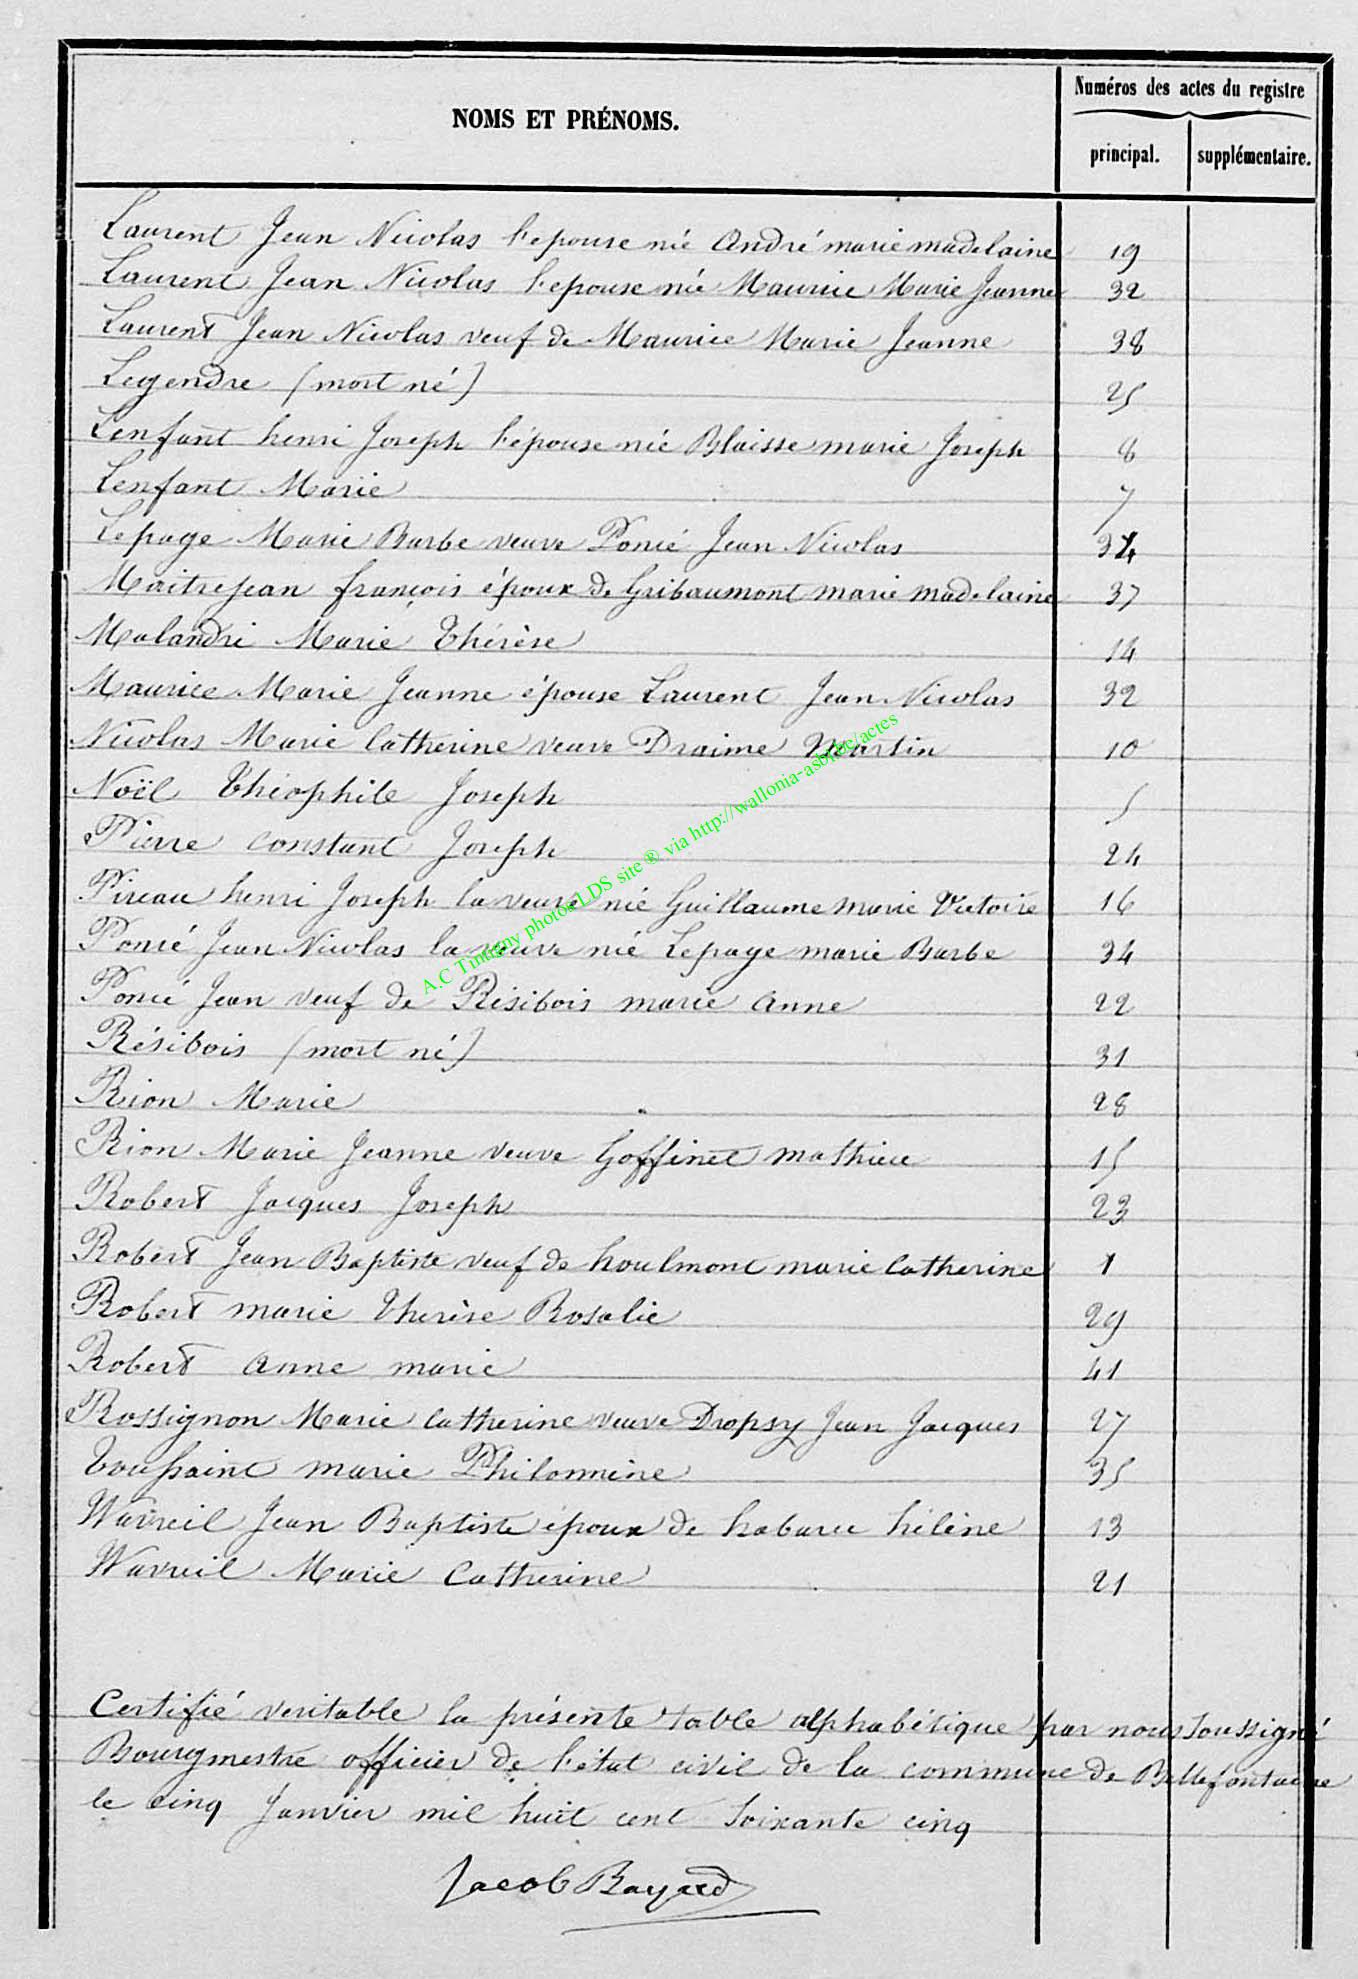 NOMS ET PRÉNOMS.
Numéros des actes du registre
principal.
supplémentaire.
Laurent Jean Nicolas l'epouse née André marie madelaine 19
Laurent Jean Nicolas l'epouse née Maurice Marie Jeanne 32
Laurent Jean Nicolas veuf de Maurice Marie Jeanne 38
Legendre (mort né) 25
Lenfant henri Joseph l'épouse née Blaisse marie Joseph 8
Lenfant Marie 7
Lepage Marie Barbe veuve Poncé Jean Nicolas 34
Maitrejean françois époux de Gribaumont marie madelaine 37
Malandri Marie Thérèse 14
Maurice Marie Jeanne épouse Laurent Jean Nicolas 32
Nicolas Marie Catherine veuve Draime Martin 10
Noël Théophile Joseph 5
Pierre constant Joseph 24
Pireau henri Joseph la veuve née Guillaume marie Victoire 16
Poncé Jean Nicolas la veuve née Lepage marie Barbe 34
Poncé Jean veuf de Résibois marie anne 22
Résibois (mort né) 31
Rion Marie 28
Rion Marie Jeanne veuve Goffinet mathieu 15
Robert Jacques Joseph 23
Robert Jean Baptiste veuf de houlmont marie Catherine 1
Robert marie Therèse Rosalie 29
Robert anne marie 41
Rossignon Marie Catherine veuve Dropsy Jean Jacques 27
Toussaint marie Philomine 35
Wavreil Jean Baptiste époux de habaru hélène 13
Wavreil Marie Catherine 21
Certifié veritable la présente table alphabétique par nous soussigné
Bourgmestre officier de l'état civil de la commune de Bellefontaine
le cinq Janvier mil huit cent soixante cinq
Jacob Bayard
A.C Tintigny photos LDS site ® via http://wallonia-asbl.be/actes